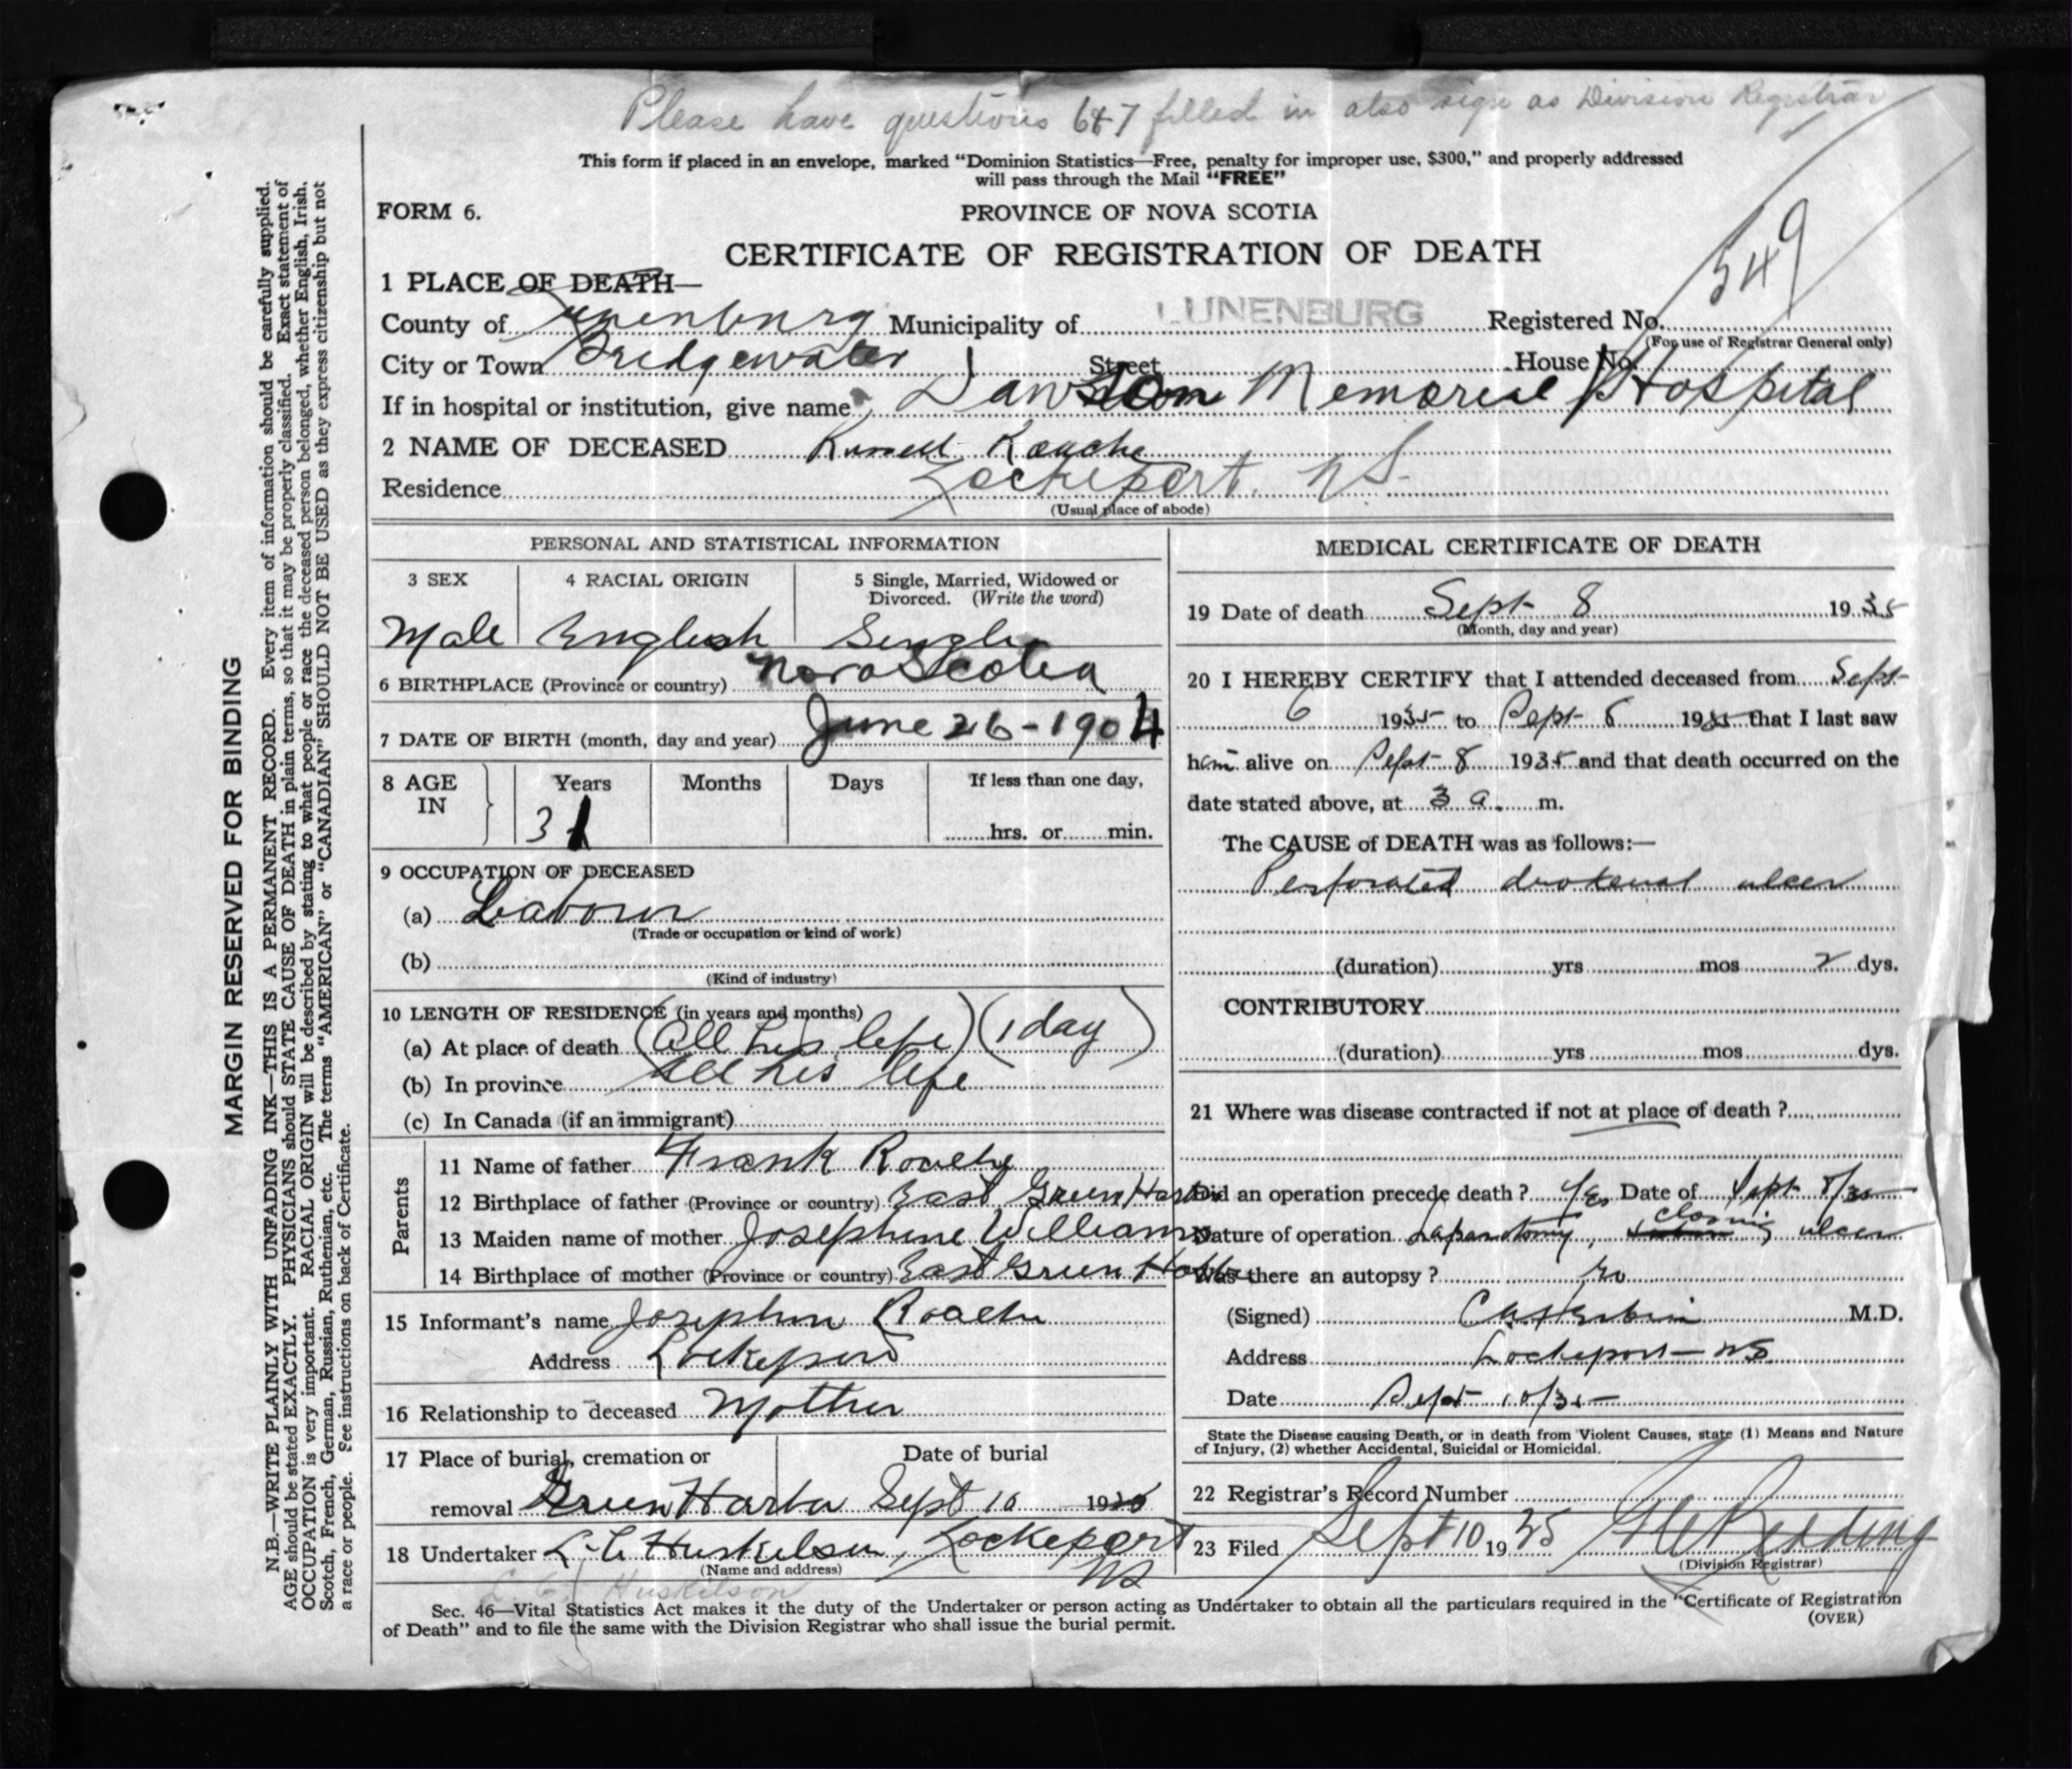 Please have questions 6&7 filled in also sign as Division Registrar
This form if placed in an envelope, marked "Dominion Statistics—Free, penalty for improper use, $300," and properly addressed
will pass through the Mail "FREE"
FORM 6.
PROVINCE OF NOVA SCOTIA
CERTIFICATE OF REGISTRATION OF DEATH
549
1 PLACE OF DEATH—
County of Lunenburg Municipality of LUNENBURG Registered No.
(For use of Registrar General only)
City or Town Bridgewater Street House No.
If in hospital or institution, give name Dawson Memorial Hospital
2 NAME OF DECEASED Russell
Residence Lockeport N.S.
(Usual place of abode)
PERSONAL AND STATISTICAL INFORMATION
3 SEX 4 RACIAL ORIGIN 5 Single, Married, Widowed or
Divorced. (Write the word)
Male English Single
6 BIRTHPLACE (Province or country) Nova Scotia
7 DATE OF BIRTH (month, day and year) June 26-1904
8 AGE IN Years Months Days If less than one day,
31 hrs. or min.
9 OCCUPATION OF DECEASED
(a) Laborer
(Trade or occupation or kind of work)
(b)
(Kind of industry)
10 LENGTH OF RESIDENCE (in years and months)
(a) At place of death (All his life) (1 day)
(b) In province All his life
(c) In Canada (if an immigrant)
Parents
11 Name of father Frank
12 Birthplace of father (Province or country) East Green Harbor
13 Maiden name of mother Josephine Williams
14 Birthplace of mother (Province or country) East Green
15 Informant's name Josephine
Address Lockeport
16 Relationship to deceased Mother
17 Place of burial, cremation or Date of burial
removal Green Harbor Sept 10 1935
18 Undertaker L.C. Huskilson, Lockeport
NS
(Name and address)
L C Huskilson
MEDICAL CERTIFICATE OF DEATH
19 Date of death Sept 8 1935
(Month, day and year)
20 I HEREBY CERTIFY that I attended deceased from Sept
6 1935 to Sept 8 1935 that I last saw
him alive on Sept 8 1935 and that death occurred on the
date stated above, at 3 a. m.
The CAUSE of DEATH was as follows:—
Perforated duodenal ulcer
(duration) yrs mos 2 dys.
CONTRIBUTORY
(duration) yrs mos dys.
21 Where was disease contracted if not at place of death ?
Did an operation precede death ? Yes Date of Sept 8/35
Nature of operation Laparotomy, closing ulcer
Was there an autopsy ? No
(Signed) M.D.
Address Lockeport NS
Date Sept 10/35
State the Disease causing Death, or in death from Violent Causes, state (1) Means and Nature
of Injury, (2) whether Accidental, Suicidal or Homicidal.
22 Registrar's Record Number
23 Filed Sept 10 1935
(Division Registrar)
Sec. 46—Vital Statistics Act makes it the duty of the Undertaker or person acting as Undertaker to obtain all the particulars required in the "Certificate of Registration
of Death" and to file the same with the Division Registrar who shall issue the burial permit.
(OVER)
MARGIN RESERVED FOR BINDING
N.B.—WRITE PLAINLY WITH UNFADING INK—THIS IS A PERMANENT RECORD. Every item of information should be carefully supplied.
AGE should be stated EXACTLY. PHYSICIANS should STATE CAUSE OF DEATH in plain terms, so that it may be properly classified. Exact statement of
OCCUPATION is very important. RACIAL ORIGIN will be described by stating to what people or race the deceased person belonged, whether English, Irish,
Scotch, French, German, Russian, Ruthenian, etc. The terms "AMERICAN" or "CANADIAN" SHOULD NOT BE USED as they express citizenship but not
a race or people. See instructions on back of Certificate.